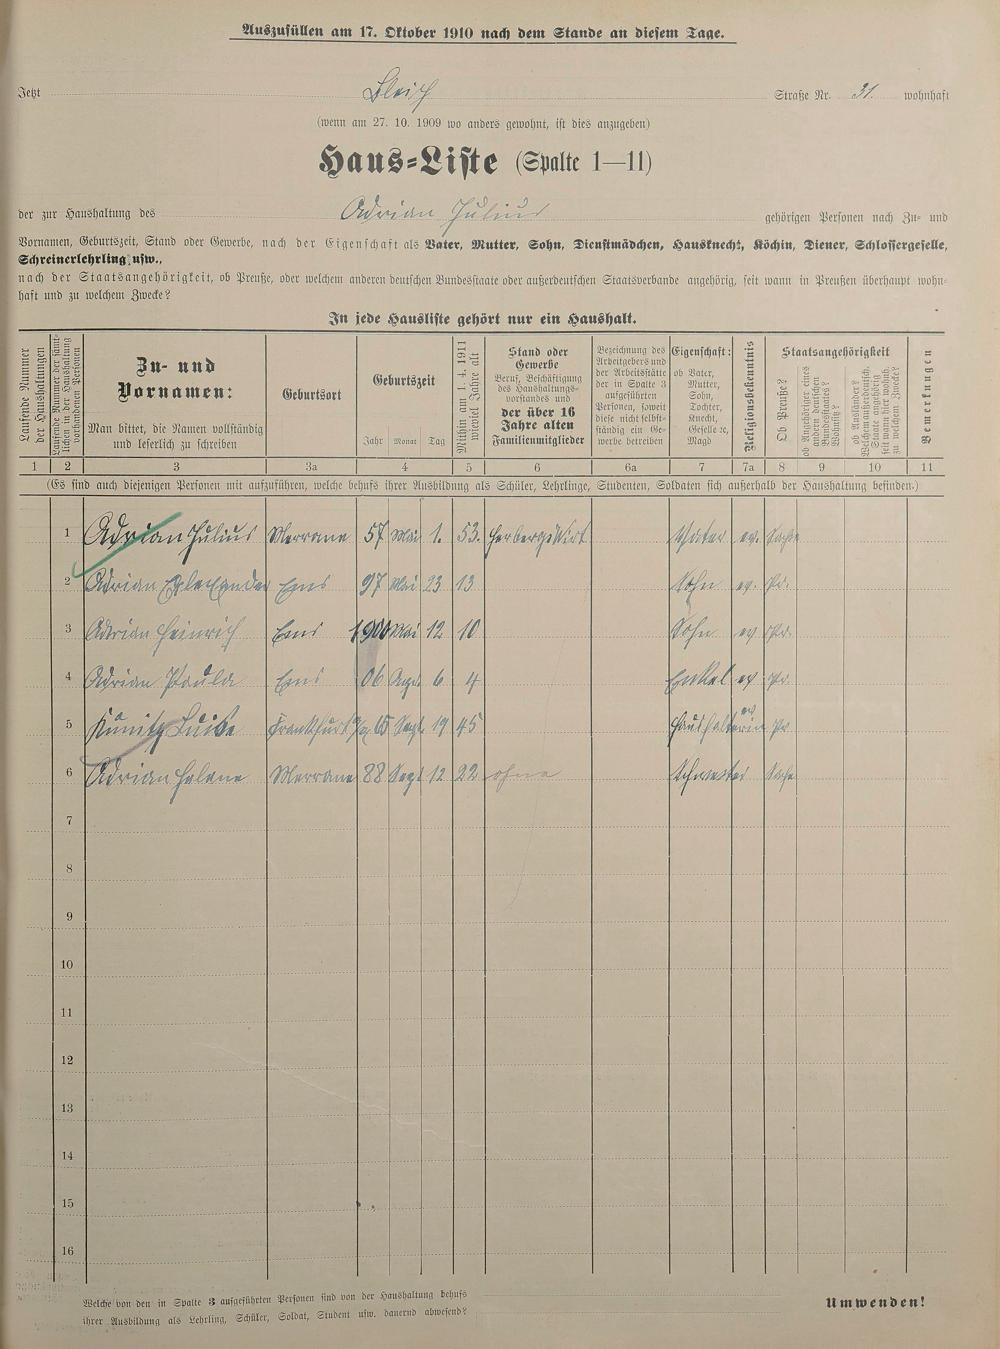 Auszufüllen am 17. Oktober 1910 nach dem Stande an diesem Tage.
Jetzt Bleich Straße Nr. 31. wohnhaft
(wenn am 27. 10. 1909 wo anders gewohnt, ist dies anzugeben)
Haus-Liste (Spalte 1—11)
der zur Haushaltung des Adrian Julius gehörigen Personen nach Zu- und
Vornamen, Geburtszeit, Stand oder Gewerbe, nach der Eigenschaft als Vater, Mutter, Sohn, Dienstmädchen, Hausknecht, Köchin, Diener, Schlossergeselle,
Schreinerlehrling usw.,
nach der Staatsangehörigkeit, ob Preuße, oder welchem anderen deutschen Bundesstaate oder außerdeutschen Staatsverbande angehörig, seit wann in Preußen überhaupt wohn-
haft und zu welchem Zwecke?
In jede Hausliste gehört nur ein Haushalt.
Laufende Nummer der Haushaltungen
Laufende Nummer der sämt-
lichen in der Haushaltung
vorhandenen Personen
Zu- und
Vornamen:
Man bittet, die Namen vollständig
und leserlich zu schreiben
Geburtsort
Geburtszeit
Jahr Monat Tag
Mithin am 1. 4. 1911
wieviel Jahre alt
Stand oder
Gewerbe
Beruf, Beschäftigung
des Haushaltungs-
vorstandes und
der über 16
Jahre alten
Familienmitglieder
Bezeichnung des
Arbeitgebers und
der Arbeitsstätte
der in Spalte 3
aufgeführten
Personen, soweit
diese nicht selbst-
ständig ein Ge-
werbe betreiben
Eigenschaft:
ob Vater,
Mutter,
Sohn,
Tochter,
Knecht,
Geselle ec,
Magd
Religionsbekenntnis
Staatsangehörigkeit
Ob Preuße?
ob Angehöriger eines
andern deutschen
Bundesstaates?
Wohnsitz?
ob Ausländer?
Welchem außerdeutsch.
Staate angehörig
seit wann hier wohnh.
zu welchem Zwecke?
Bemerkungen
1 2 3 3a 4 5 6 6a 7 7a 8 9 10 11
(Es sind auch diejenigen Personen mit aufzuführen, welche behufs ihrer Ausbildung als Schüler, Lehrlinge, Studenten, Soldaten sich außerhalb der Haushaltung befinden.)
1 Adrian Julius Merrane 57 Mai 1. 53. Herbergswirt Vater ev. Sachse
2 Adrian Ems 97 Mai 23 13 Sohn ev. Pr.
3 Adrian Heinrich Ems 1900 Mai 12 10 Sohn ev Pr.
4 Adrian Paula Ems 06 Aug. 6 4 Enkel ev Pr.
5 Kunitz Luise Frankfurt 65 Sept 19 45 Haushälterin ev Pr
6 Adrian Helene Merrane 88 Sept 12 22 ohne Schwester Sachse
7
8
9
10
11
12
13
14
15
16
Welche von den in Spalte 3 aufgeführten Personen sind von der Haushaltung behufs
ihrer Ausbildung als Lehrling, Schüler, Soldat, Student usw. dauernd abwesend?
Umwenden!